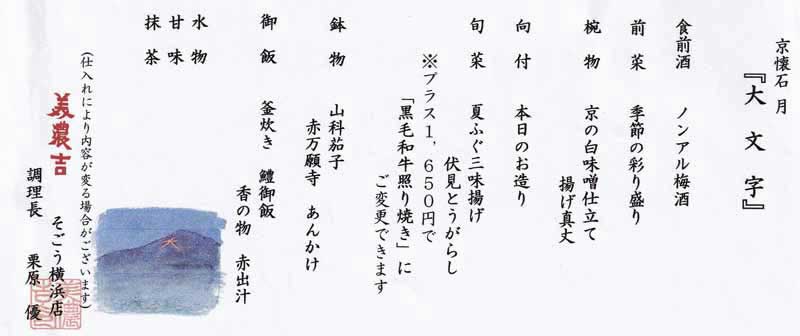 京懐石 月
『大文字』
食前酒 ノンアル梅酒
前菜 季節の彩り盛り
椀物 京の白味噌仕立て
揚げ真丈
向付 本日のお造り
旬菜 夏ふぐ三味揚げ
伏見とうがらし
※プラス1,650円で
「黒毛和牛照り焼き」に
ご変更できます
鉢物 山科茄子
赤万願寺 あんかけ
御飯 釜炊き 鱧御飯
香の物 赤出汁
水物
甘味
抹茶
(仕入れにより内容が変る場合がございます)
美濃吉
そごう横浜店
調理長 栗原 優